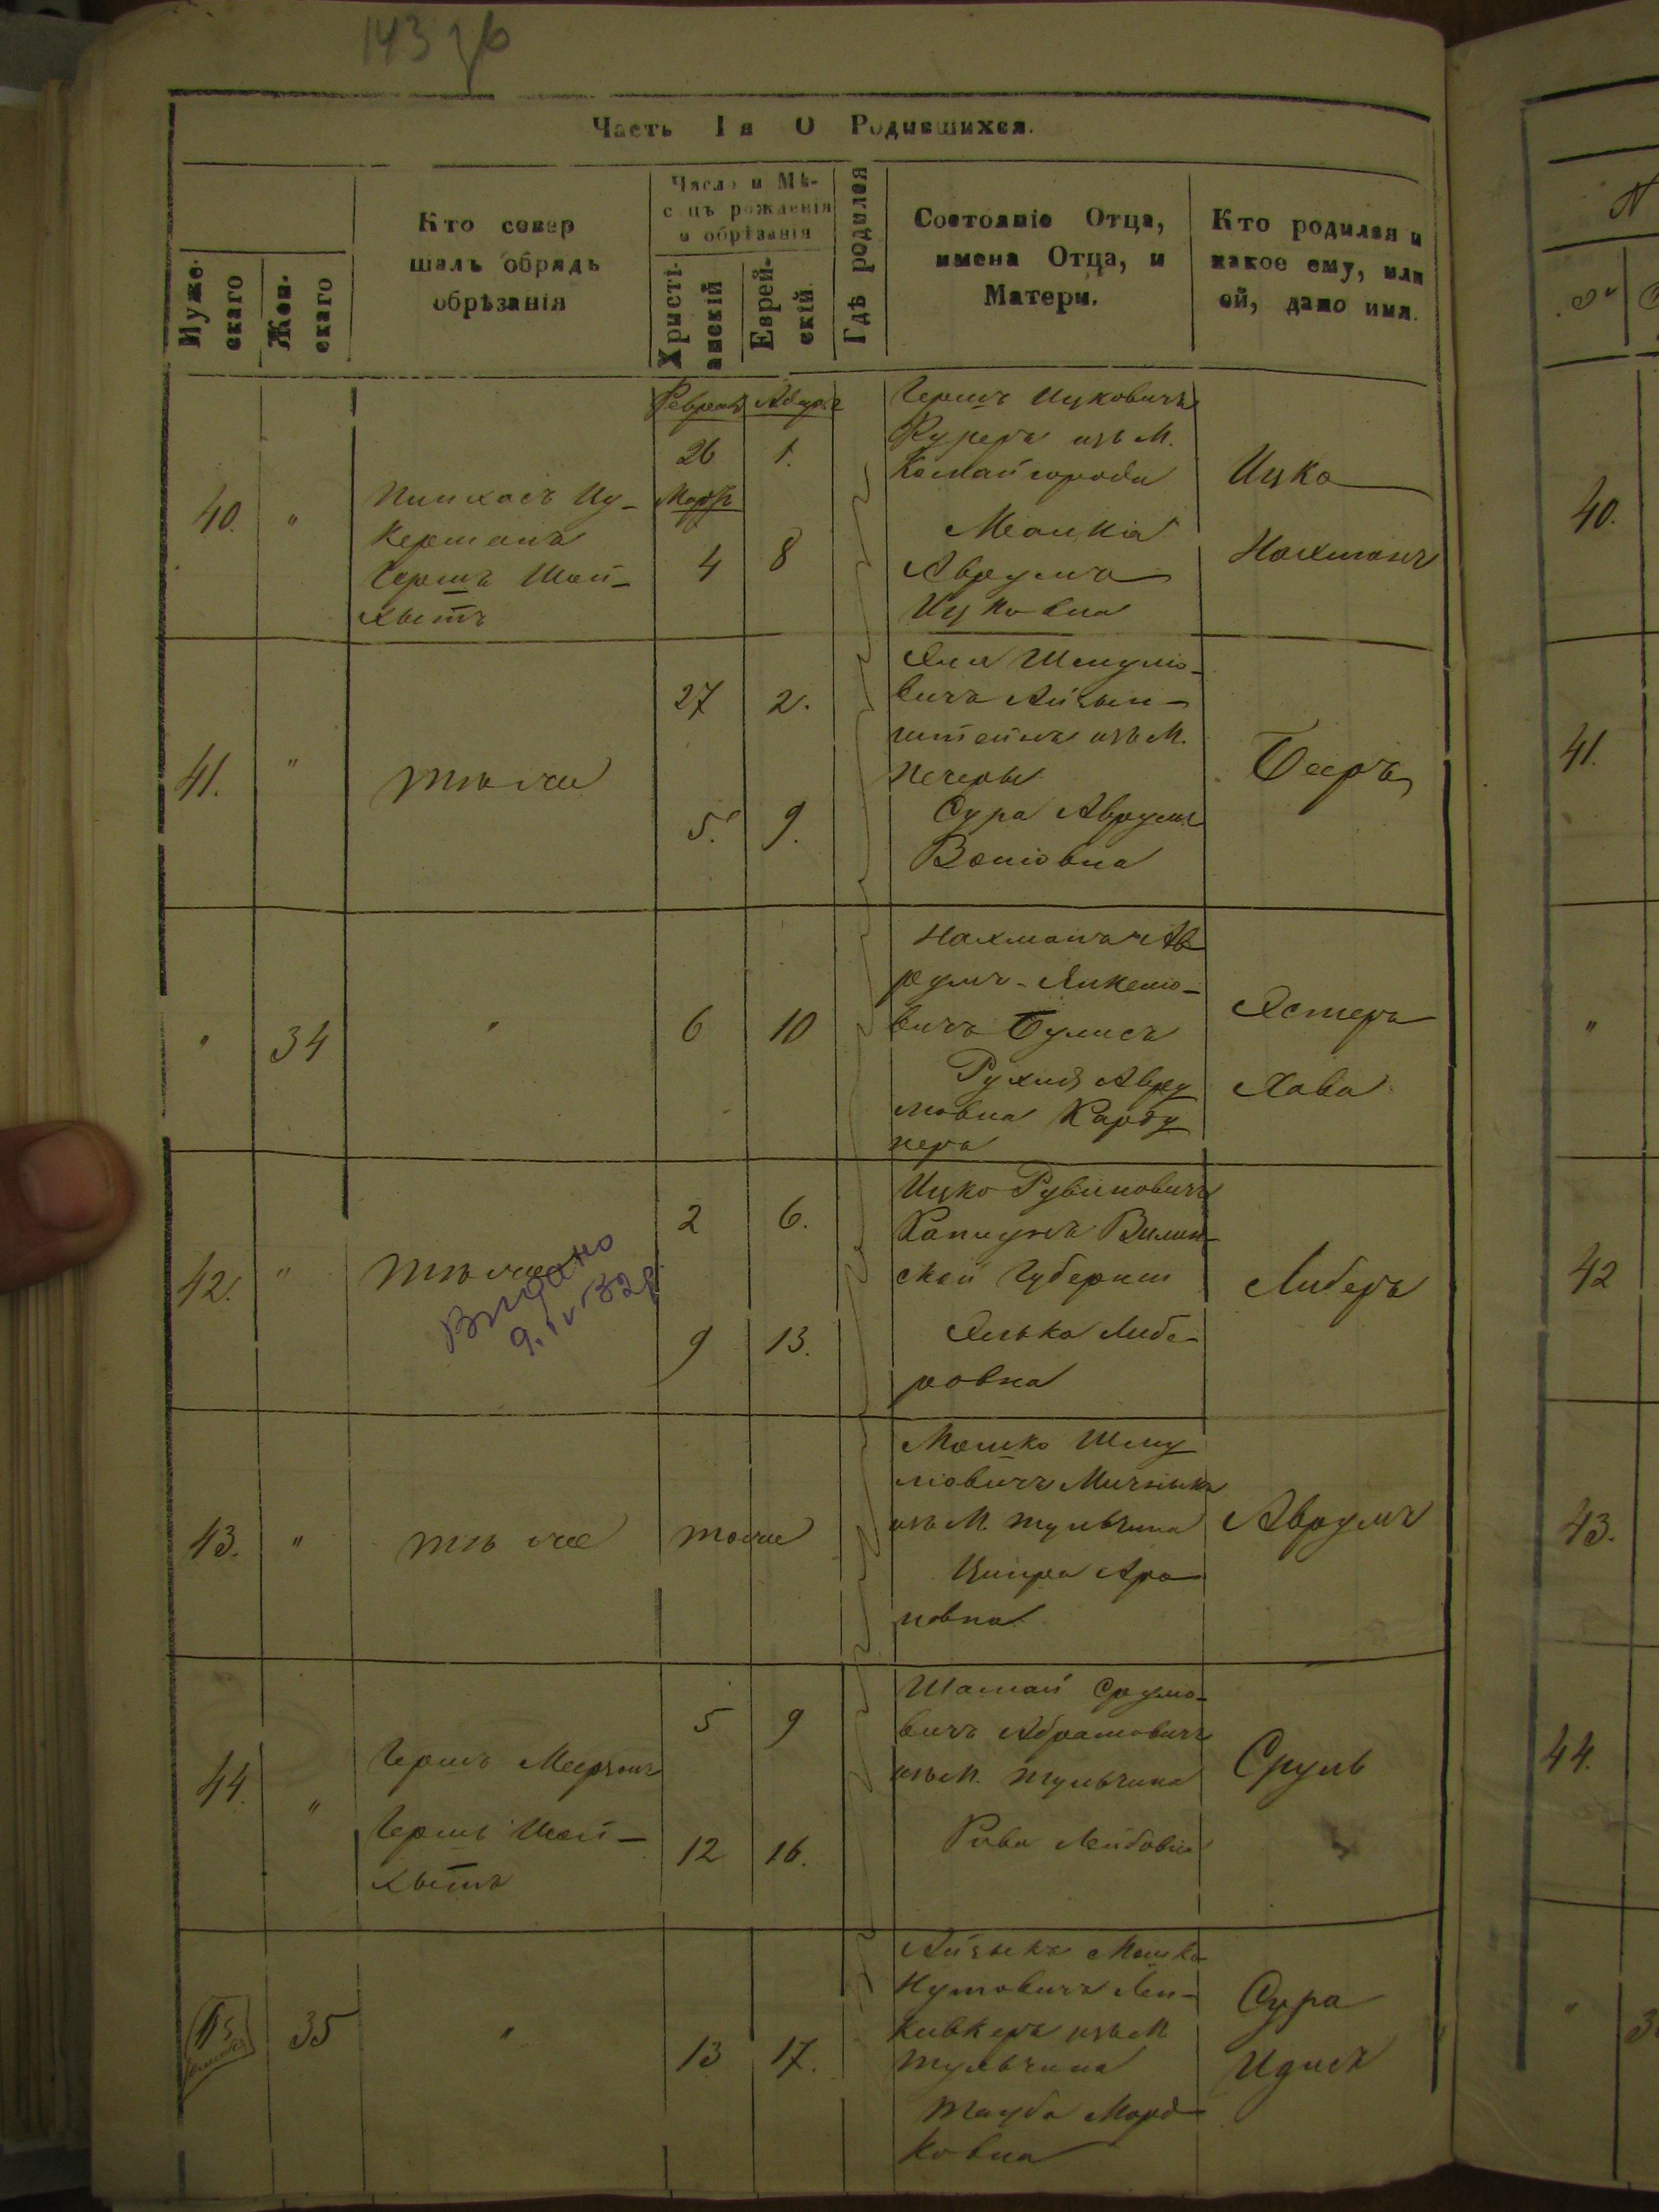 143 зб
Часть Iя О Родившихся.
Мужескаго
Женскаго
Кто совершалъ обрядъ обрѣзанія
Число и Мѣсяцъ рожденія и обрѣзанія
Христіанский
Еврейскій.
Гдѣ родился
Состояніе Отца, имена Отца, и Матери.
Кто родился и какое ему, или ей, дано имя.
40.
"
Пинхасъ Цу-
керманъ
Гершъ Шой-
хытъ
Февраль Адаръ
26 1.
Мартъ
4 8
Гершъ Ицковичъ
Куперъ изъ М.
Копайгорода
Аврумъ
Ицковна
Ицко
Нахманъ
41.
"
тѣ же
27 2.
5. 9.
Эля Шмулю-
вичъ Айзын-
штейнъ изъ М.
Печеры
Сура Аврумъ
Беръ
"
34
"
6 10
Нахманъ Ав
румъ-Янкелю-
вичъ
Рухля Авру
мовна
Эстеръ
Хава
42.
"
тѣ же
Видано
9. IV 32 р.
2 6.
9 13.
Ицко Рувиновичъ
Капцунъ Вилен-
ской Губерніи
Элька Либе-
ровна
Либеръ
43.
"
тѣ же
тоже
Мошко Шму
лювичъ Мичныкъ
изъ М. Тульчина
Ципра Аро
новна
Аврумъ
44.
"
Гершъ
Гершъ Шой-
хытъ
5 9
12 16.
Шамай Срулю-
вичъ Абрамовичъ
изъ М. Тульчина
Рива Лейбовна
Сруль
35
"
13 17.
Айзыкъ Мошко
Нутовичъ
изъ М
Тульчина
Тауба Морд-
ковна
Сура
Идисъ
40.
41.
"
42
43.
44.
"